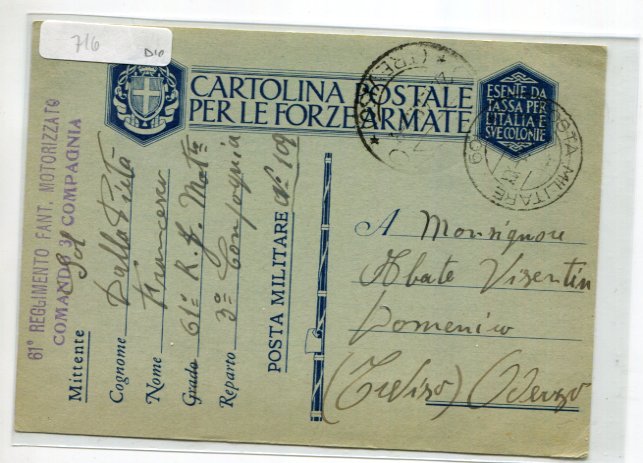 716
D10
CARTOLINA POSTALE
PER LE FORZE ARMATE
ESENTE DA
TASSA PER
L'ITALIA E
SVE COLONIE
POSTA MILITARE
109
61° REGGIMENTO FANT. MOTORIZZATO
COMANDO 3ª COMPAGNIA
Mittente
Cognome Dalla Pietà
Nome Francesco
Grado 61º R. f. Motº
Reparto 3º Compagnia
POSTA MILITARE Nº 109
A Monsignore
Abate Visentin
Domenico
(Treviso) Oderzo